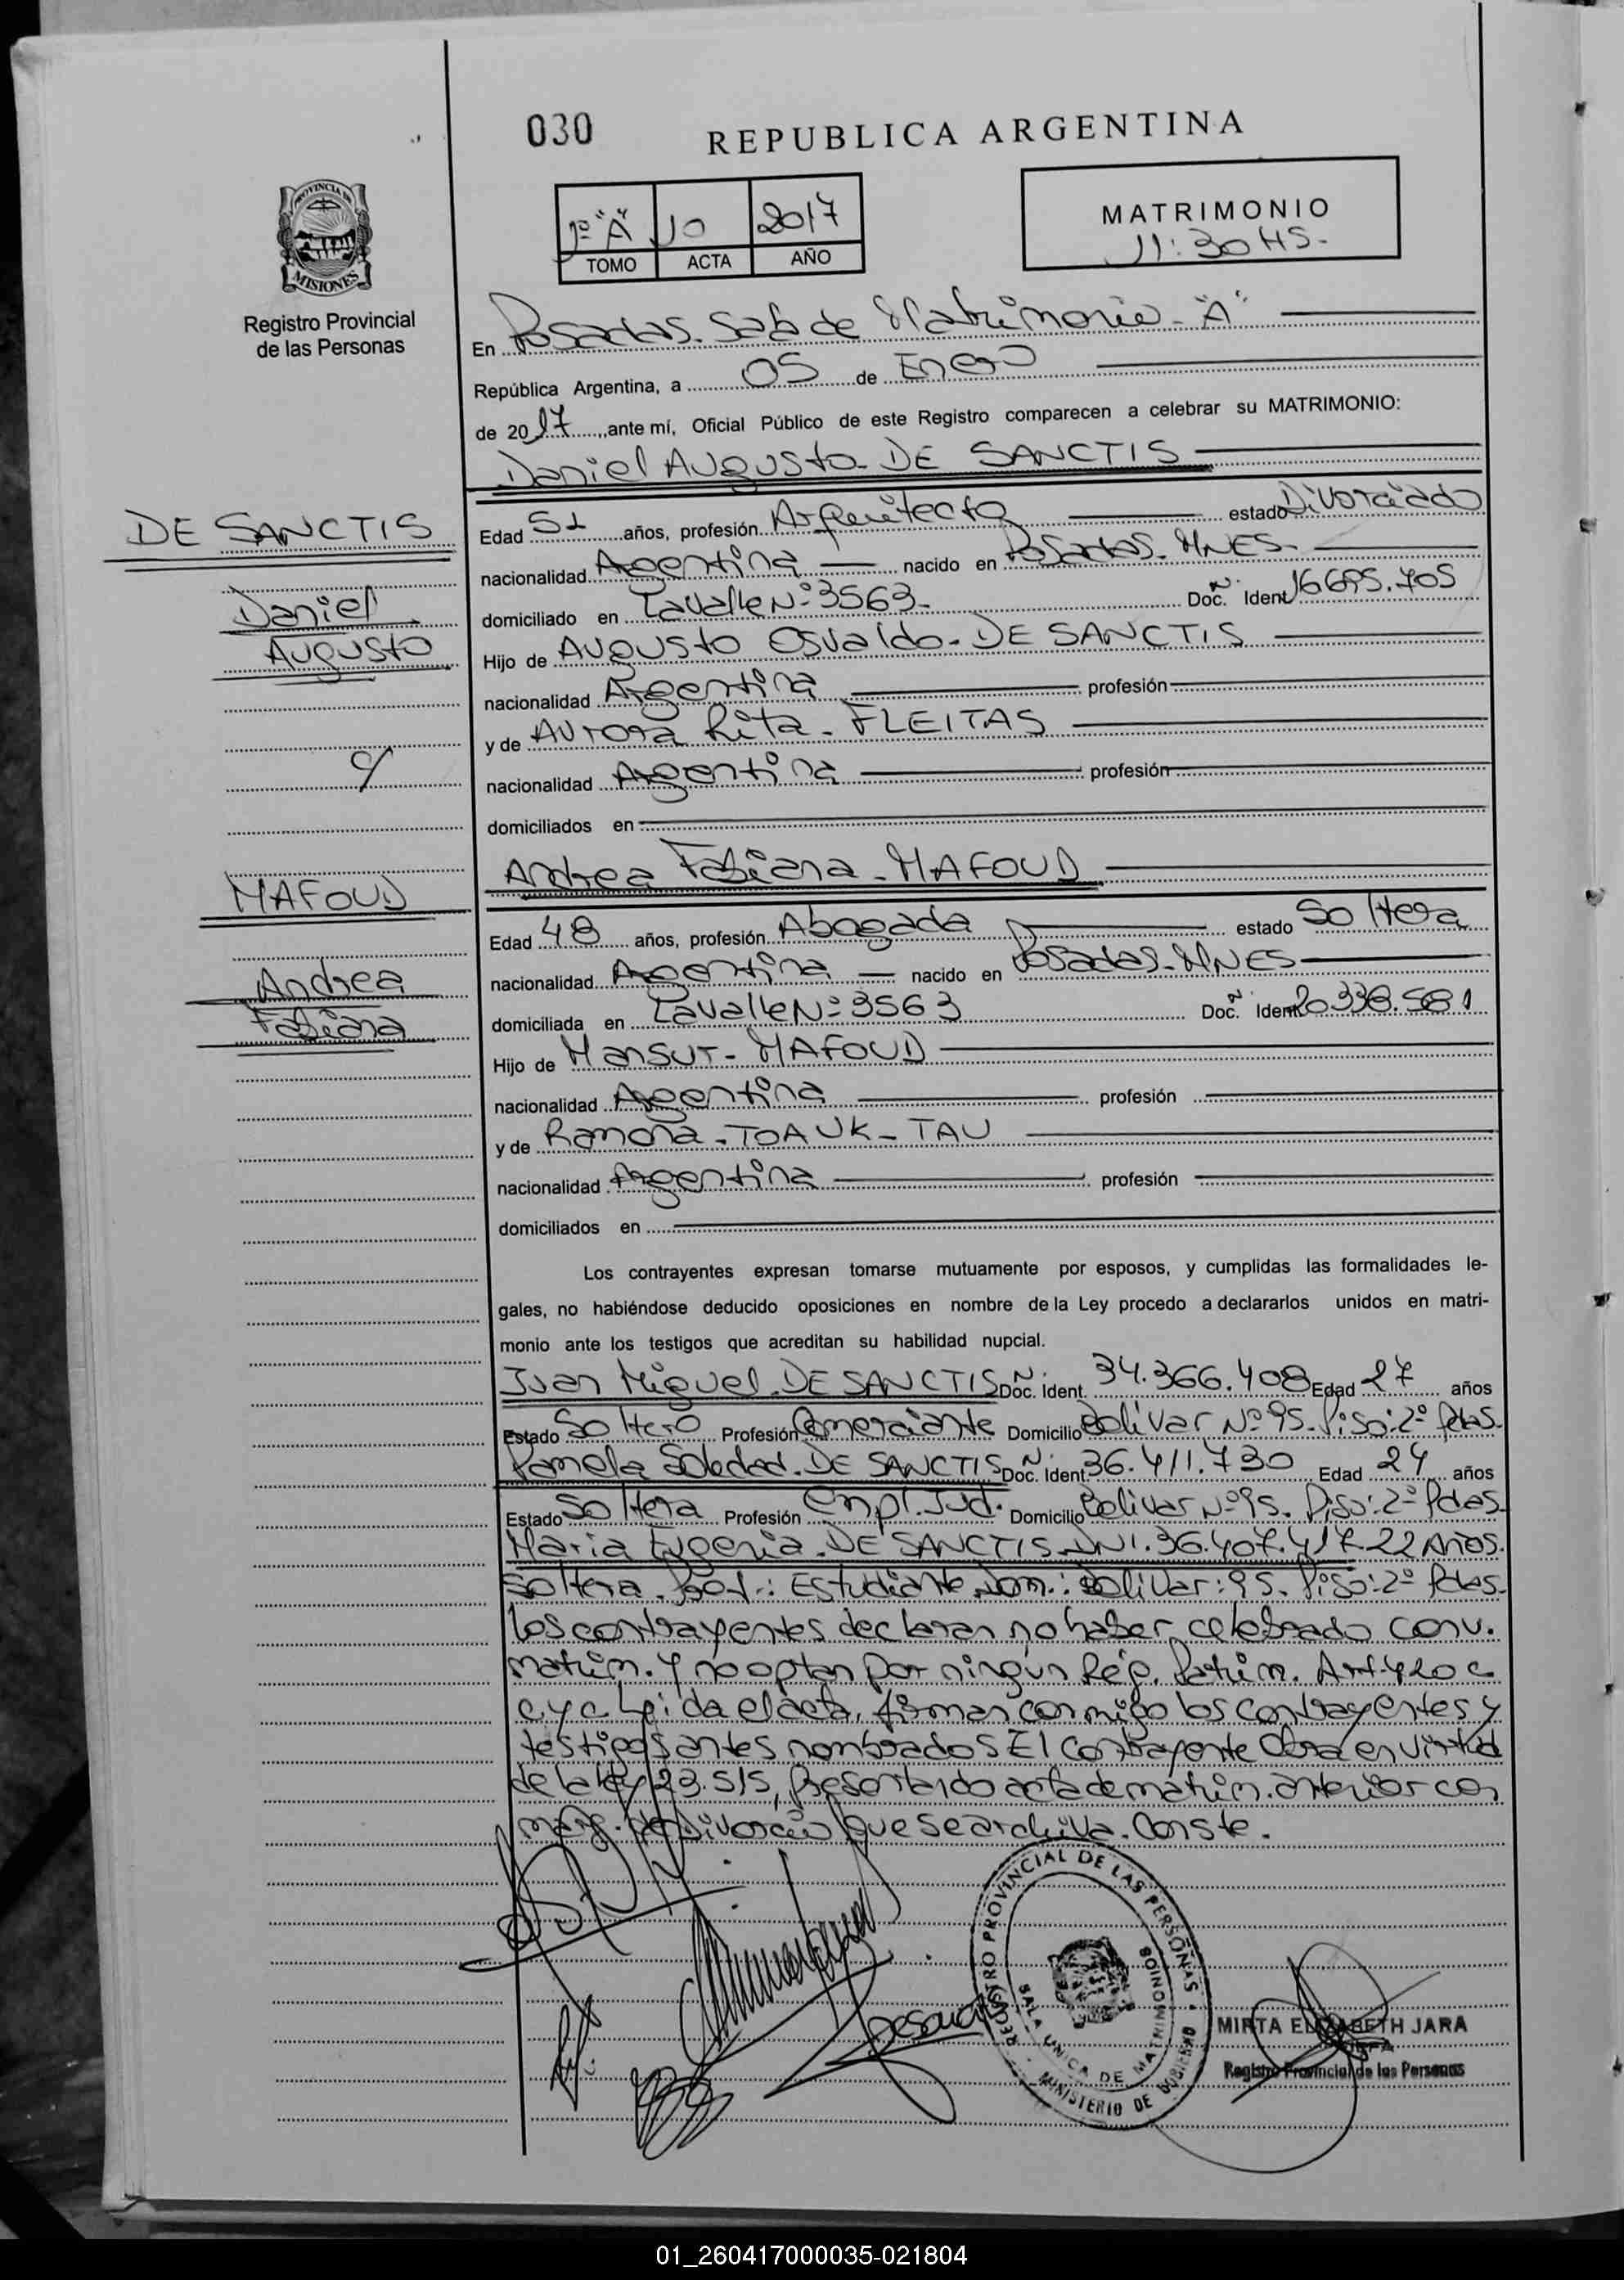 030
REPUBLICA ARGENTINA
PROVINCIA DE
MISIONES
Registro Provincial
de las Personas
1º "A" 10 2017
TOMO ACTA AÑO
MATRIMONIO
11:30 HS.-
En Posadas. Sala de Matrimonio - "A"
República Argentina, a 05 de Enero
de 2017, ante mí, Oficial Público de este Registro comparecen a celebrar su MATRIMONIO:
Daniel Augusto DE SANCTIS
DE SANCTIS
Daniel
Augusto
c/
MAFOUD
Andrea
Fabiana
Edad 51 años, profesión Arquitecto estado Divorciado
nacionalidad Argentina nacido en Posadas. MNES.
domiciliado en Lavalle Nº 3563- Doc. Ident. 16695.705
Hijo de Augusto Osvaldo - DE SANCTIS
nacionalidad Argentina profesión
y de Aurora Rita - FLEITAS
nacionalidad Argentina profesión
domiciliados en
Andrea Fabiana - MAFOUD
Edad 48 años, profesión Abogada estado Soltera
nacionalidad Argentina nacido en Posadas. MNES
domiciliada en Lavalle Nº 3563 Doc. Ident. 20.338.581
Hijo de Mansur - MAFOUD
nacionalidad Argentina profesión
y de Ramona - TOAUK - TAU
nacionalidad Argentina profesión
domiciliados en
Los contrayentes expresan tomarse mutuamente por esposos, y cumplidas las formalidades le-
gales, no habiéndose deducido oposiciones en nombre de la Ley procedo a declararlos unidos en matri-
monio ante los testigos que acreditan su habilidad nupcial.
Juan Miguel. DE SANCTIS Doc. Ident. 34.366.408 Edad 27 años
Estado Soltero Profesión Comerciante Domicilio Bolívar Nº 95. Piso: 2º Pdas.
Pamela Soledad. DE SANCTIS Doc. Ident. 36.411.730 Edad 24 años
Estado Soltera Profesión Empl. Jud. Domicilio Bolivar Nº 95. Piso: 2º Pdas.
Maria Eugenia. DE SANCTIS. DNI. 36.407.417. 22 Años.
Soltera. Prof.: Estudiante. Dom.: Bolivar: 95. Piso: 2º Pdas.
los contrayentes declaran no haber celebrado conv.
matrim. y no optan por ningún Rég. Patrim. Art. 420 c
c y c Leida el acta, firman conmigo los contrayentes y
testigos antes nombrados El contrayente obra en virtud
de la ley 23.515, Presentando acta de matrim. anterior con
marg. de Divorcio que se archiva. Conste.
REGISTRO PROVINCIAL DE LAS PERSONAS
SALA UNICA DE MATRIMONIOS
MINISTERIO DE GOBIERNO
MIRTA ELIZABETH JARA
JEFA
Registro Provincial de las Personas
01_260417000035-021804